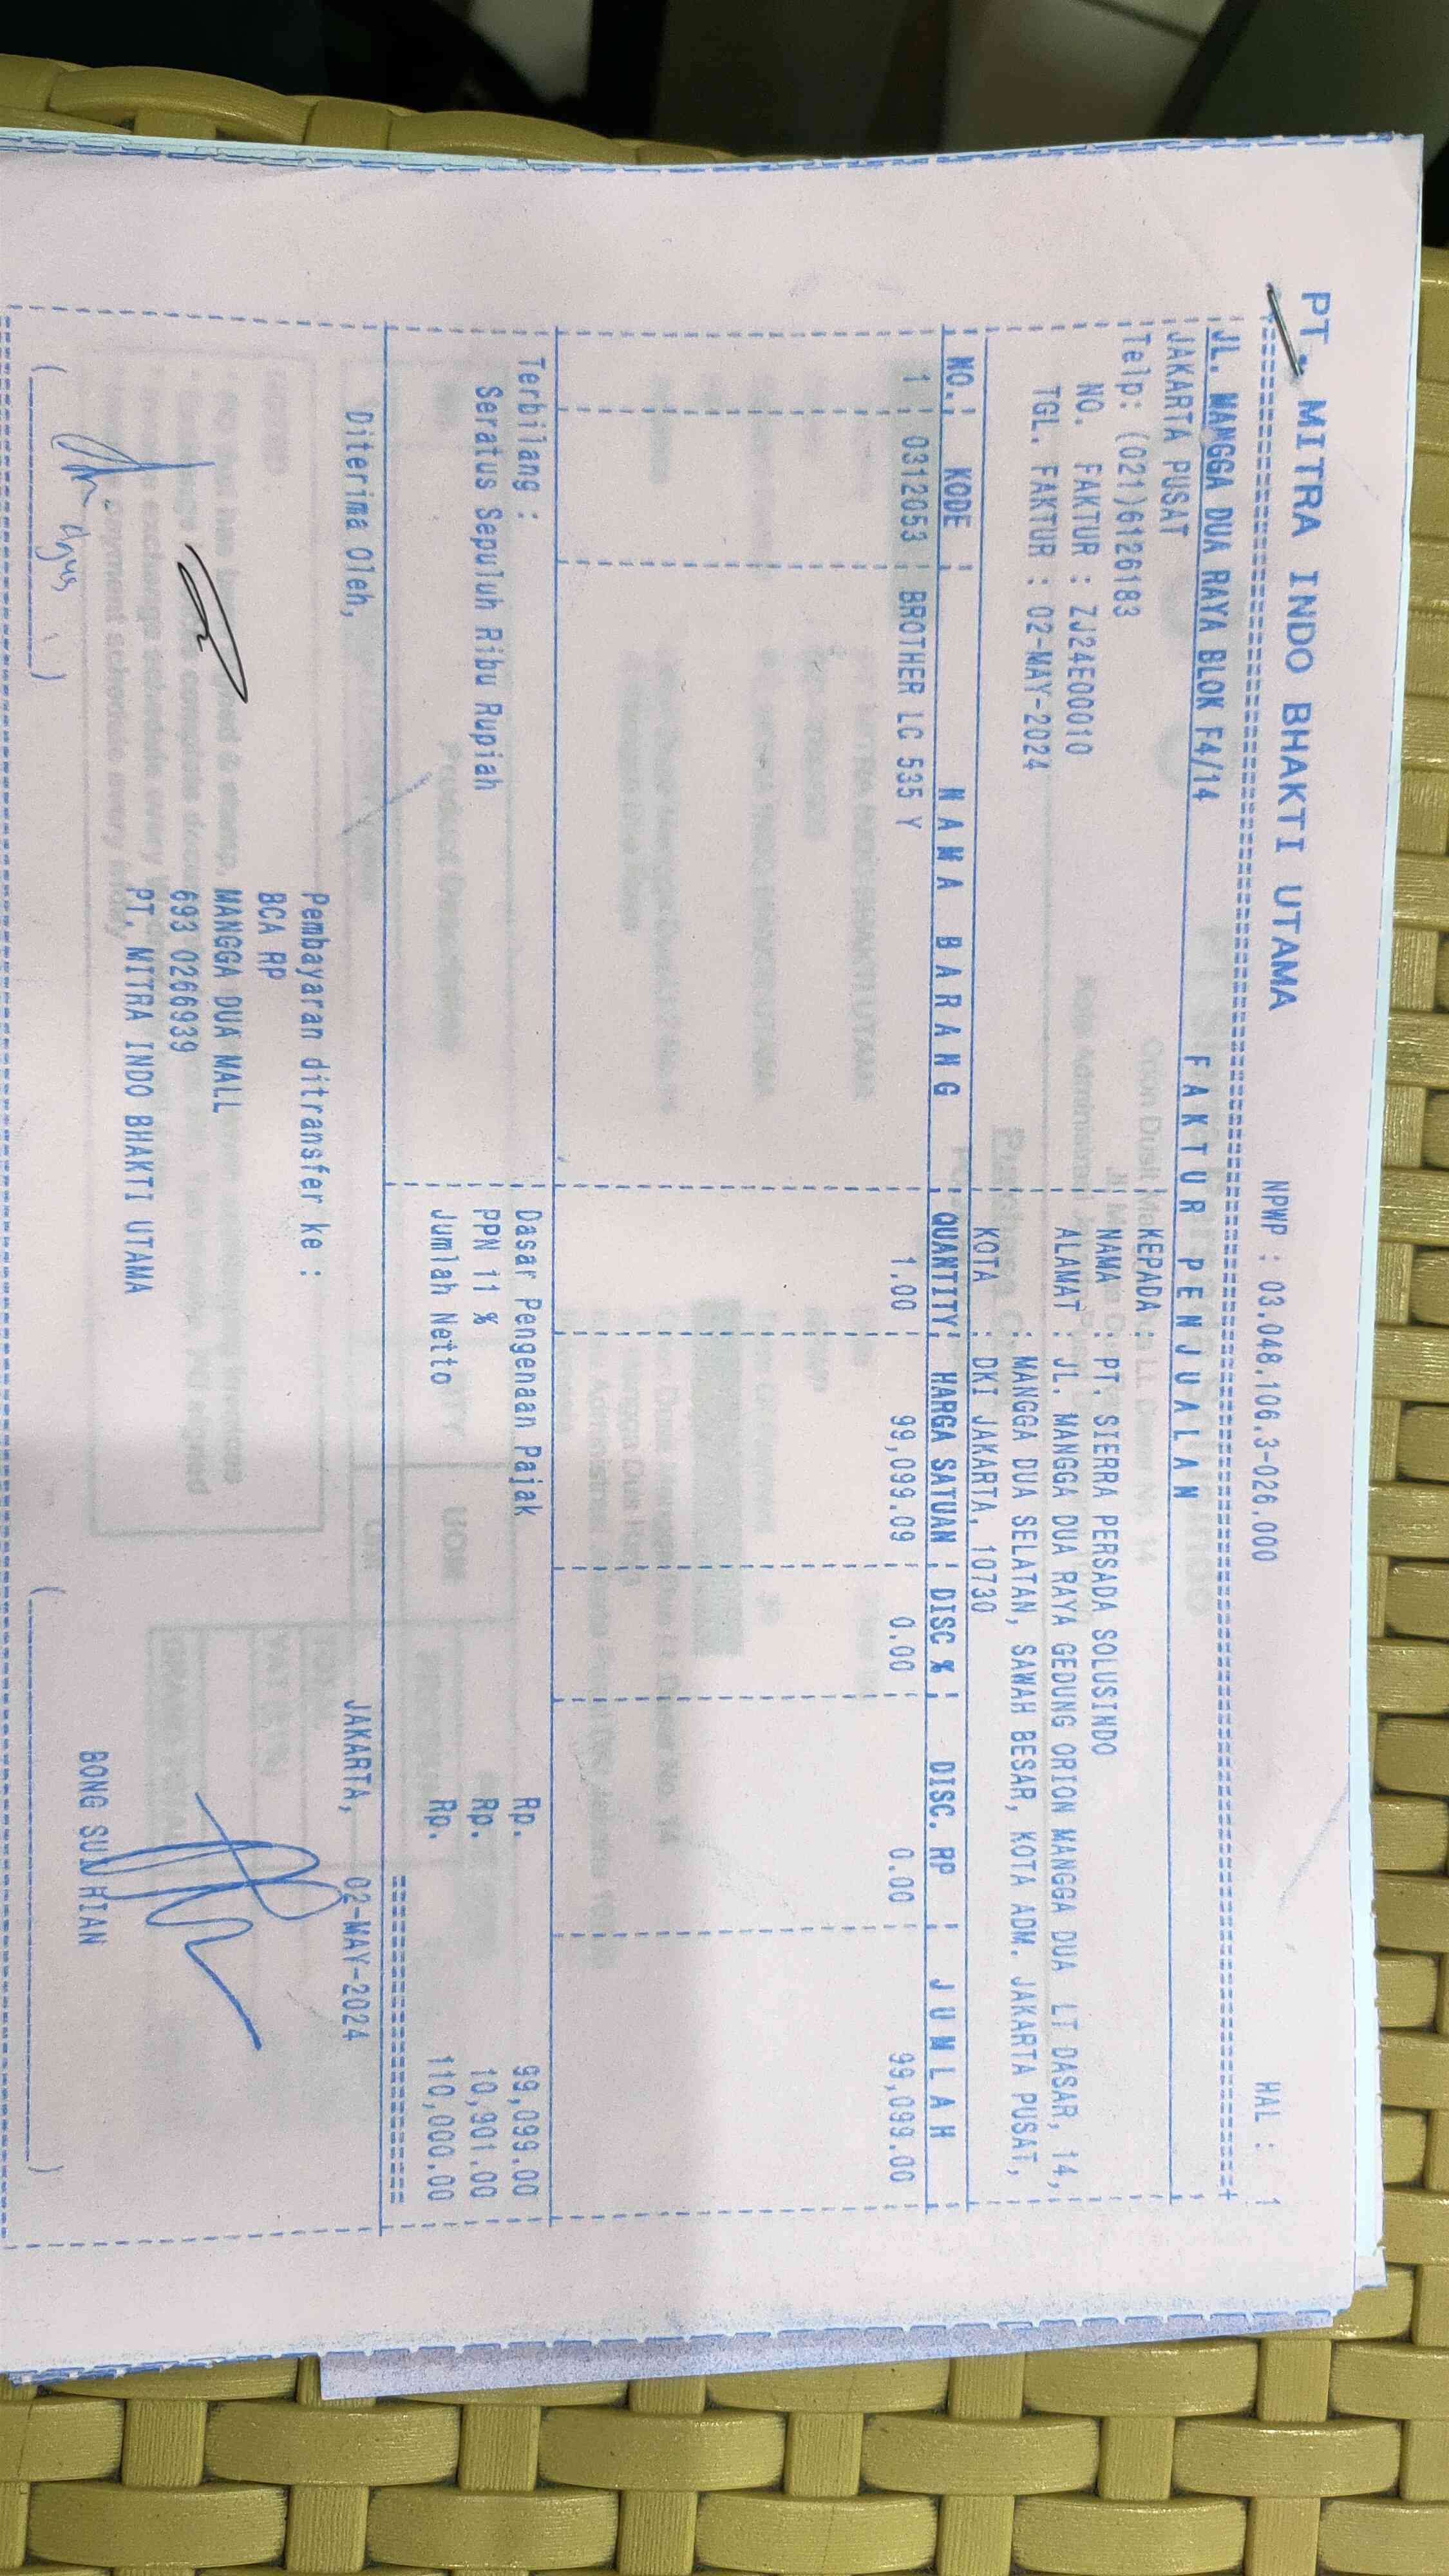 PT. MITRA INDO BHAKTI UTAMA
NPWP : 03.048.106.3-026.000 HAL : 1
JL. MANGGA DUA RAYA BLOK F4/14
JAKARTA PUSAT
F A K T U R P E N J U A L A N
Telp: (021)6126183
KEPADA :
NO. FAKTUR : ZJ24E00010
NAMA : PT. SIERRA PERSADA SOLUSINDO
TGL. FAKTUR : 02-MAY-2024
ALAMAT : JL. MANGGA DUA RAYA GEDUNG ORION MANGGA DUA LT DASAR, 14,
: MANGGA DUA SELATAN, SAWAH BESAR, KOTA ADM. JAKARTA PUSAT,
KOTA : DKI JAKARTA, 10730
NO. KODE N A M A B A R A N G QUANTITY HARGA SATUAN DISC % DISC. RP J U M L A H
1 0312053 BROTHER LC 535 Y 1.00 99,099.09 0.00 0.00 99,099.00
Terbilang : Dasar Pengenaan Pajak Rp. 99,099.00
Seratus Sepuluh Ribu Rupiah PPN 11 % Rp. 10,901.00
Jumlah Netto Rp. 110,000.00
Diterima Oleh, JAKARTA, 02-MAY-2024
Pembayaran ditransfer ke :
BCA RP
MANGGA DUA MALL
693 0266939
PT. MITRA INDO BHAKTI UTAMA
Agus
BONG SUN HIAN